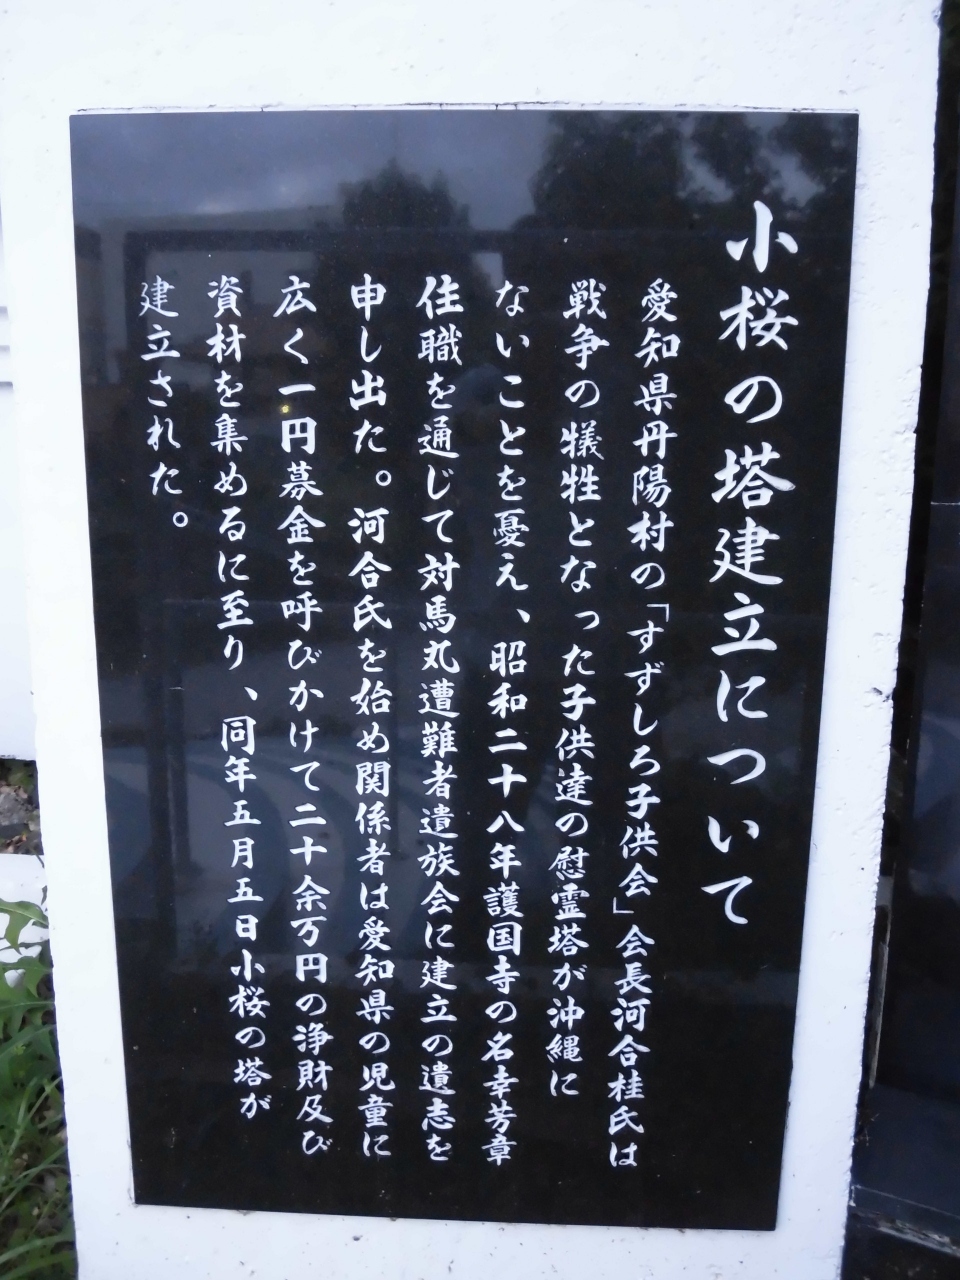 小桜の塔建立について
愛知県丹陽村の「すずしろ子供会」会長河合桂氏は
戦争の犠牲となった子供達の慰霊塔が沖縄に
ないことを憂え、昭和二十八年護国寺の名幸芳章
住職を通じて対馬丸遭難者遺族会に建立の遺志を
申し出た。河合氏を始め関係者は愛知県の児童に
広く一円募金を呼びかけて二十余万円の浄財及び
資材を集めるに至り、同年五月五日小桜の塔が
建立された。